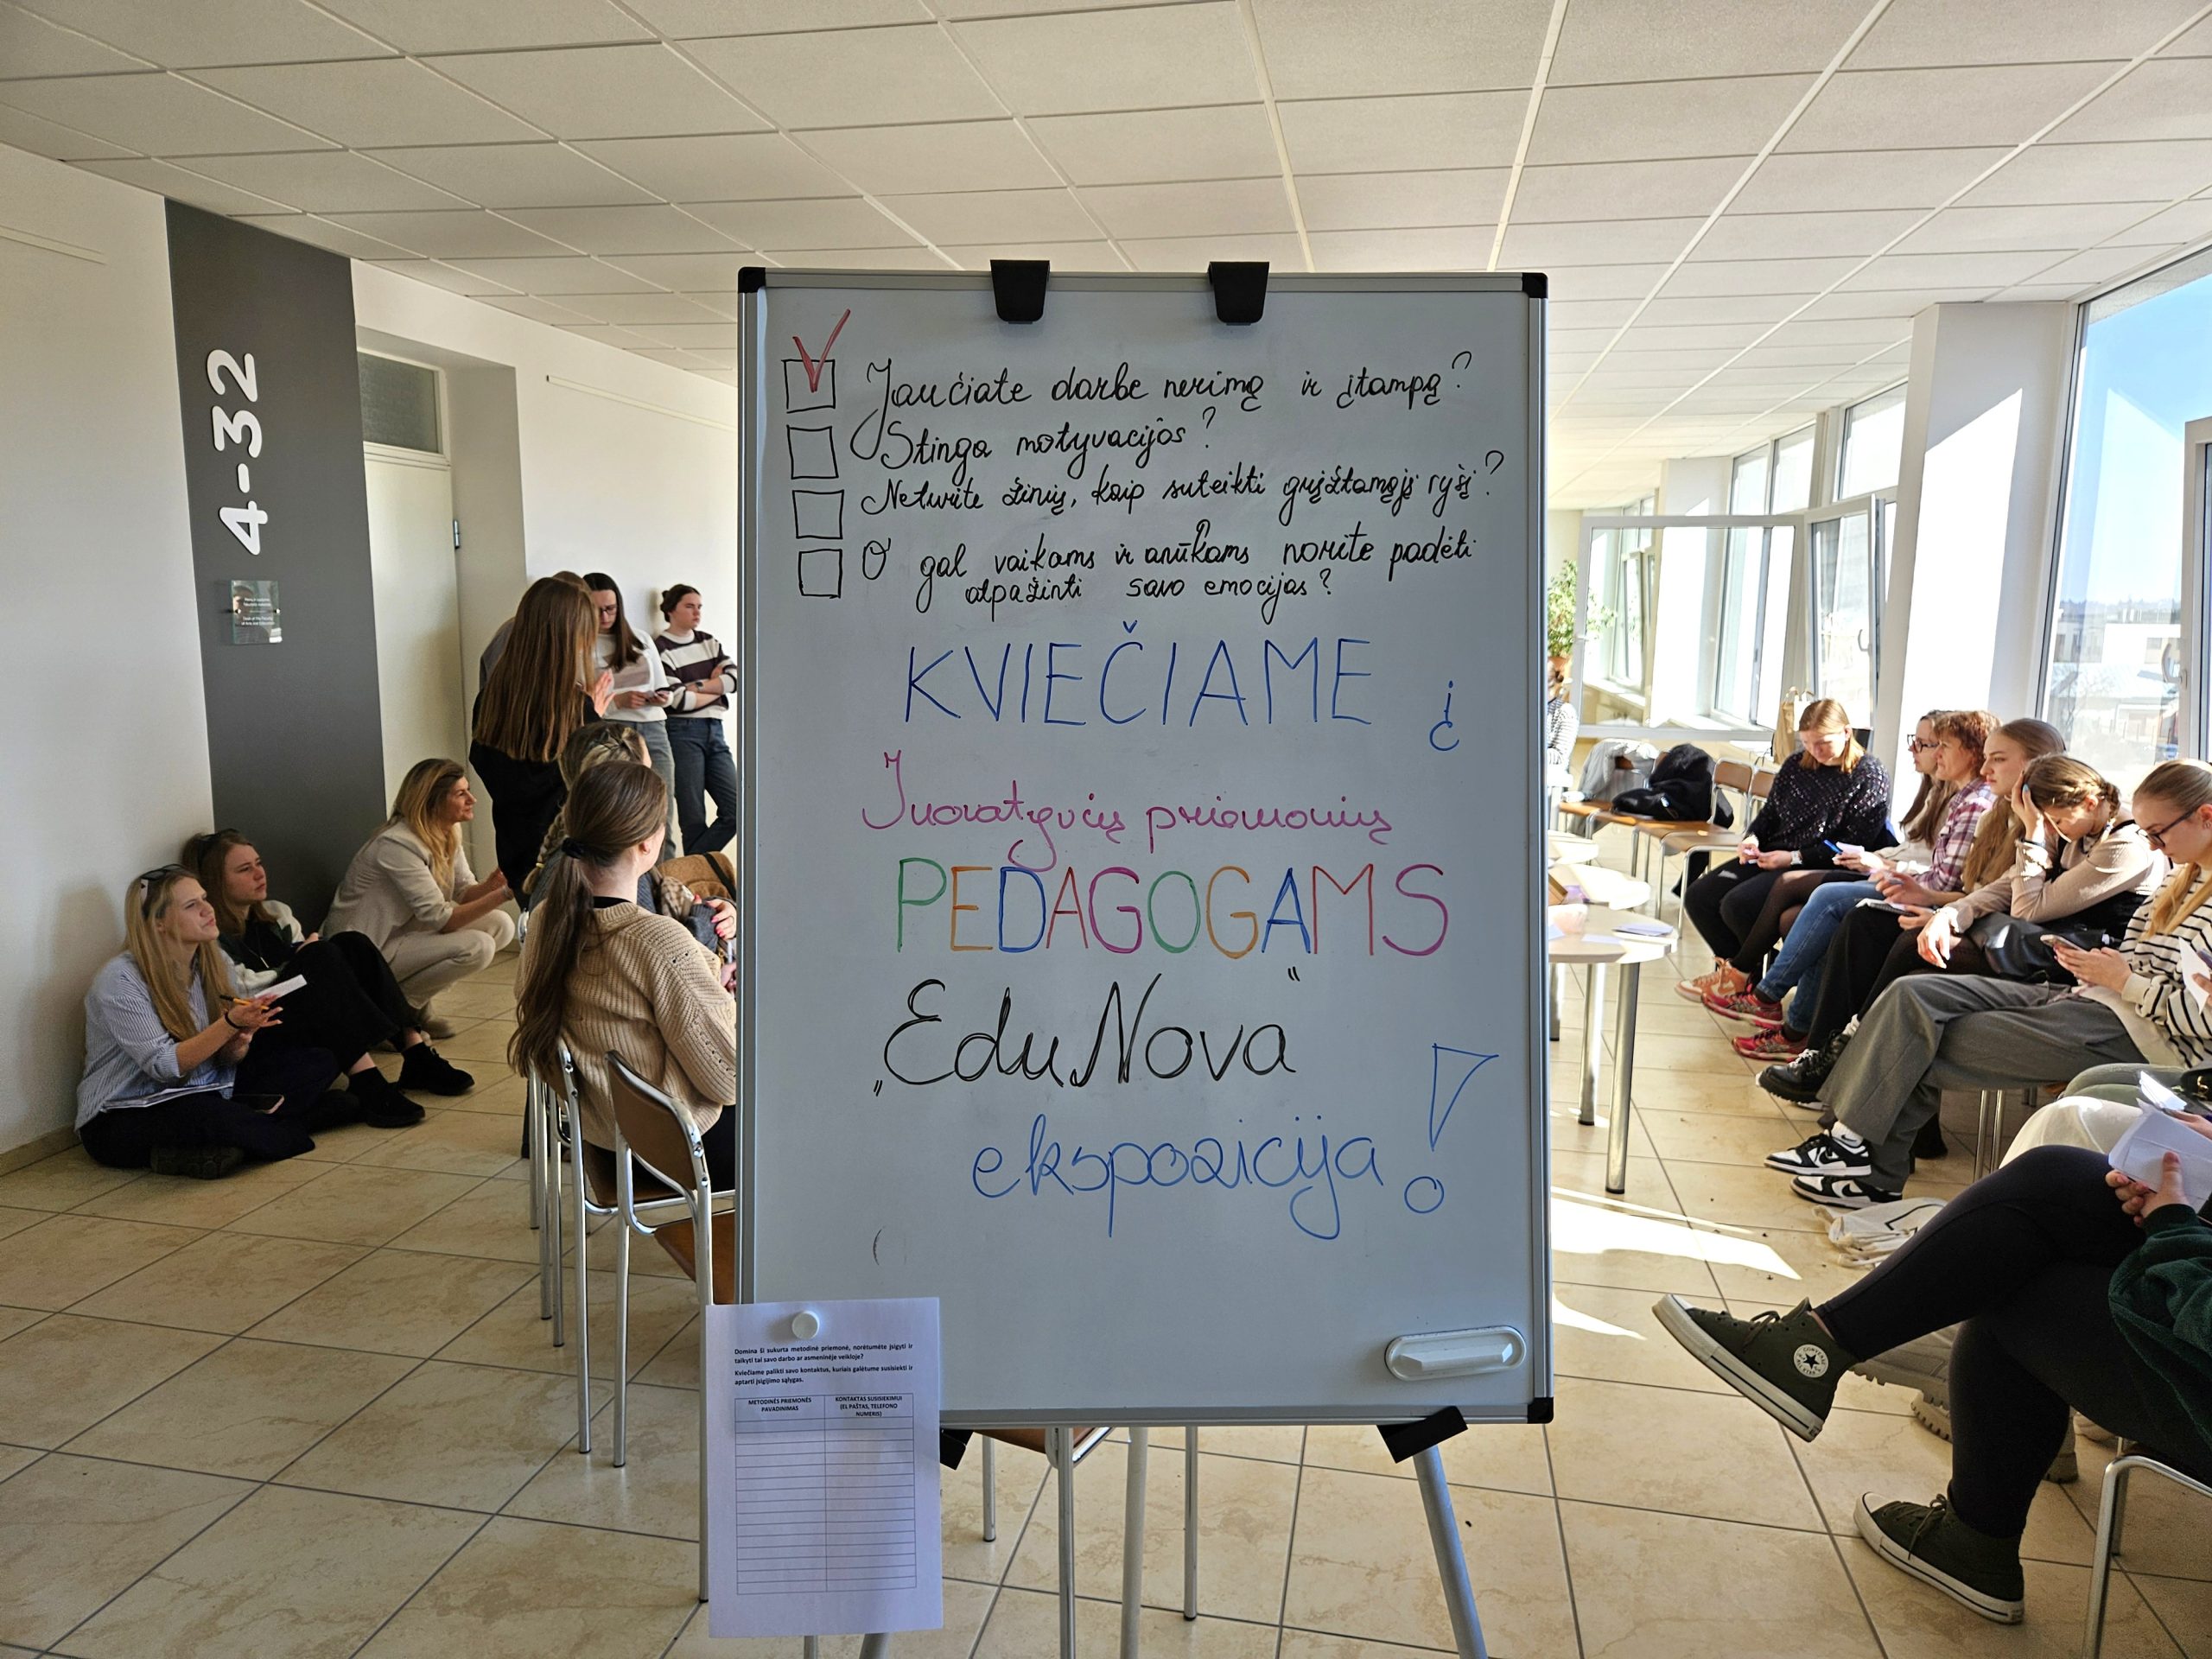 4-32
Jaučiate darbe nerimą ir įtampą?
Stinga motyvacijos?
Neturite žinių, kaip suteikti grįžtamąjį ryšį?
O gal vaikams ir anūkams norite padėti
atpažinti savo emocijas?
KVIEČIAME į
Inovatyvių priemonių
PEDAGOGAMS
„EduNova"
ekspozicija!
Domina ši sukurta metodinė priemonė, norėtumėte įsigyti ir
taikyti tai savo darbo ar asmeninėje veikloje?
Kviečiame palikti savo kontaktus, kuriais galėtume susisiekti ir
aptarti įsigijimo sąlygas.
METODINĖS PRIEMONĖS
PAVADINIMAS
KONTAKTAS SUSISIEKIMUI
(EL PAŠTAS, TELEFONO
NUMERIS)
CONVERSE